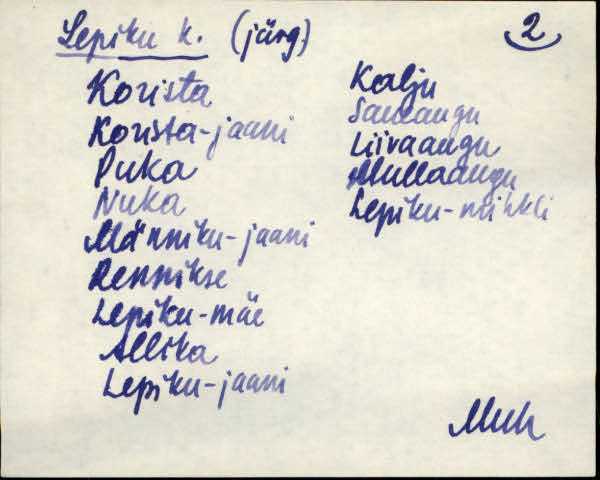 Lepiku k. (järg.)
2
Korista
Korista-jaani
Puka
Nuka
Männiku-jaani
Rennikse
Lepiku-mäe
Allika
Lepiku-jaani
Kalju
Saueaugu
Liivaaugu
Mullaaugu
Lepiku-mihkli
Muh